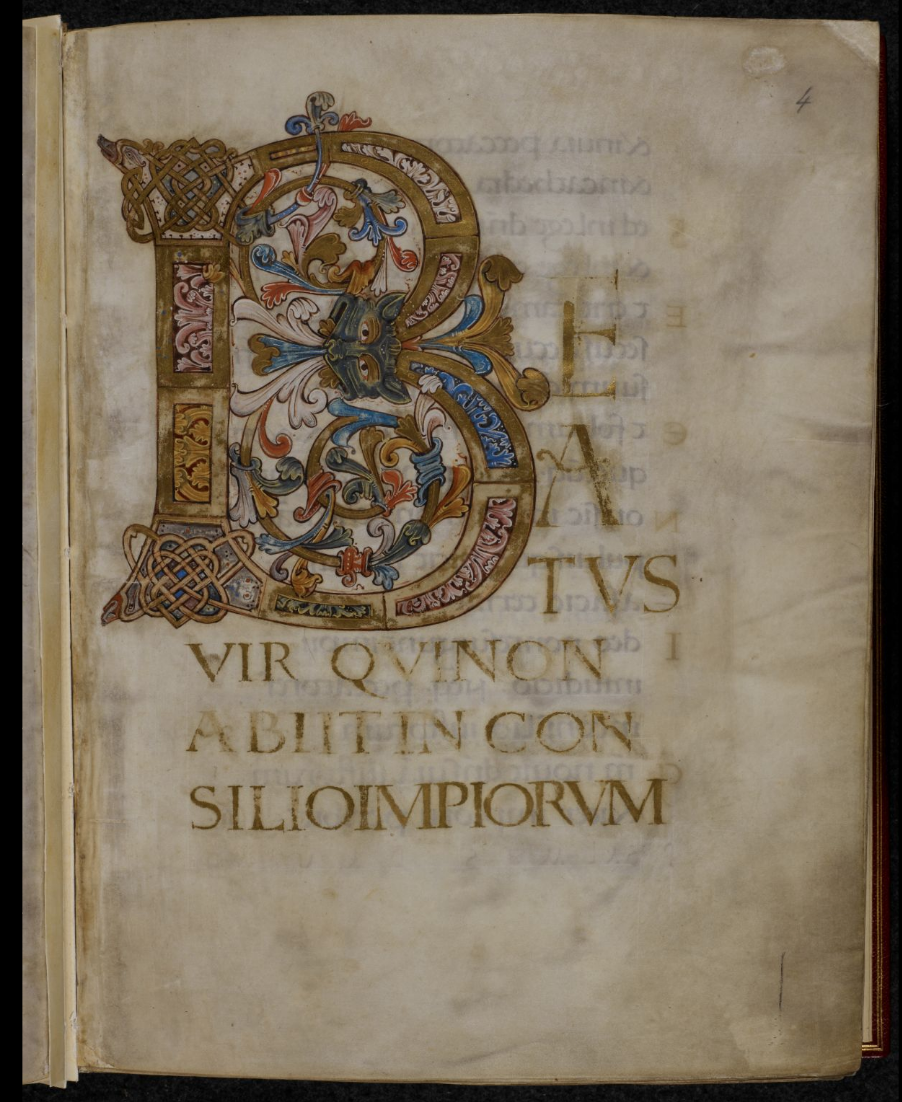 4
B
E
A
TVS
VIR QVINON
ABIITIN CON
SILIOIMPIORVM